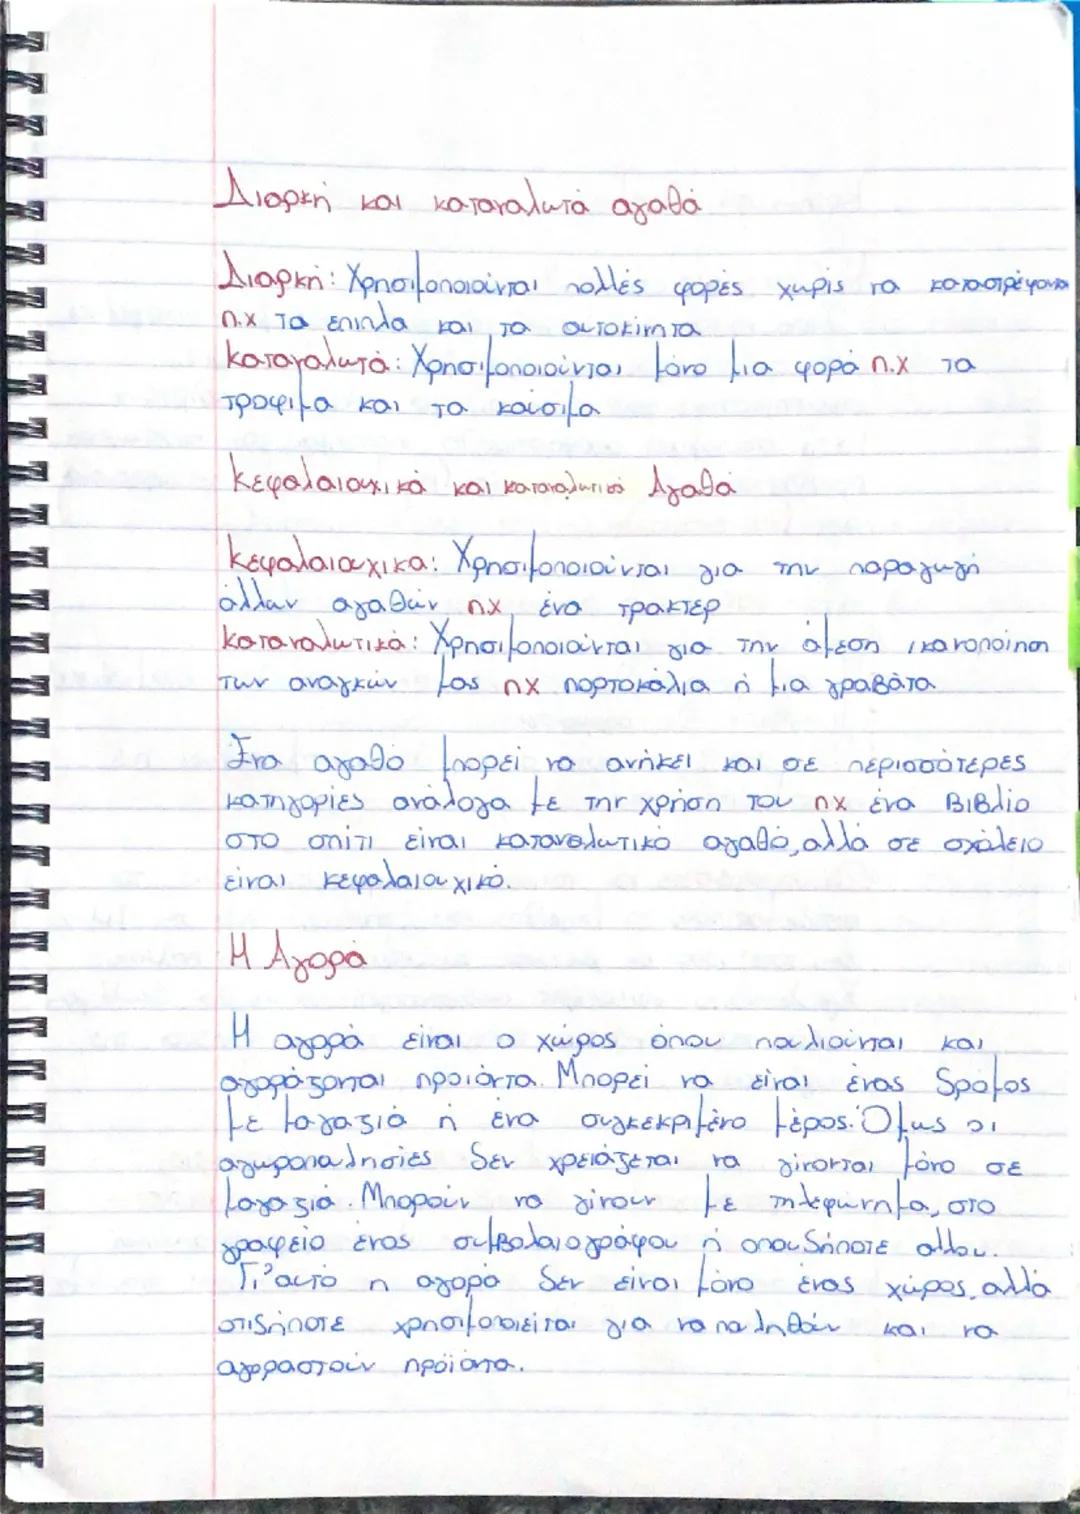 Διαρκή και καταναλωτά αγαθά
Διαρκή: Χρησιμοποιούνται πολλές φορές χωρίς να καταστρέφονται
π.χ τα έπιπλα και τα αυτοκίνητα
Καταναλωτά: Χρησιμοποιούνται μόνο μια φορά π.χ τα
τροφιμα και τα καύσιμα
Κεφαλαιουχικά και καταναλωτικά Αγαθά
Κεφαλαιουχικα: Χρησιμοποιούνται για την παραγωγή
άλλων αγαθών πχ ένα τρακτερ
Καταναλωτικά: Χρησιμοποιούνται για την άμεση ικανοποίηση
των αναγκών μας πχ πορτοκάλια ή μια γραβάτα
Ένα αγαθό μπορεί να ανήκει και σε περισσότερες
κατηγορίες ανάλογα με την χρήση του πχ ένα βιβλίο
στο σπίτι είναι καταναλωτικό αγαθό, αλλά σε σχόλειο
είναι κεφαλαιουχικό.
Η Αγορά
Η αγορά είναι ο χώρος όπου πουλιούνται και
αγοράζονται προιόντα. Μπορεί να είναι ένας δρόμος
με μαγαζιά ή ένα συγκεκριμένο μέρος. Όμως οι
αγωροπωλησίες δεν χρειάζεται να γίνονται μόνο σε
μαγαζιά. Μπορούν να γίνουν με τηλεφώνημα, στο
γραφείο ενός συμβολαιογράφου ή οπουδήποτε αλλου.
Γι' αυτό η αγορά δεν είναι μόνο ένας χώρος, αλλά
οτιδήποτε χρησιμοποιείται για να πωληθούν και να
αγοραστούν προϊόντα.